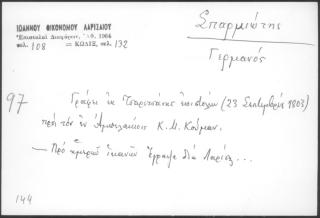 ΙΩΑΝΝΟΥ ΟΙΚΟΝΟΜΟΥ ΛΑΡΙΣΑΙΟΥ
Ἐπιστολαὶ Διαφόρων, 1964
σελ. 108 — ΚΩΔΙΞ, σελ. 132
Σπαρμιώτης
Γερμανός
97
Γράφει ἐκ Τσαριτσάνης ἐπιστολὴν (23 Σεπτεμβρίου 1803)
πρὸς τὸν ἐν Ἀμπελακίοις Κ. Μ. Κούμαν.
— Πρὸ ἡμερῶν ἱκανῶν ἔγραψα διὰ Λαρίσ...
144